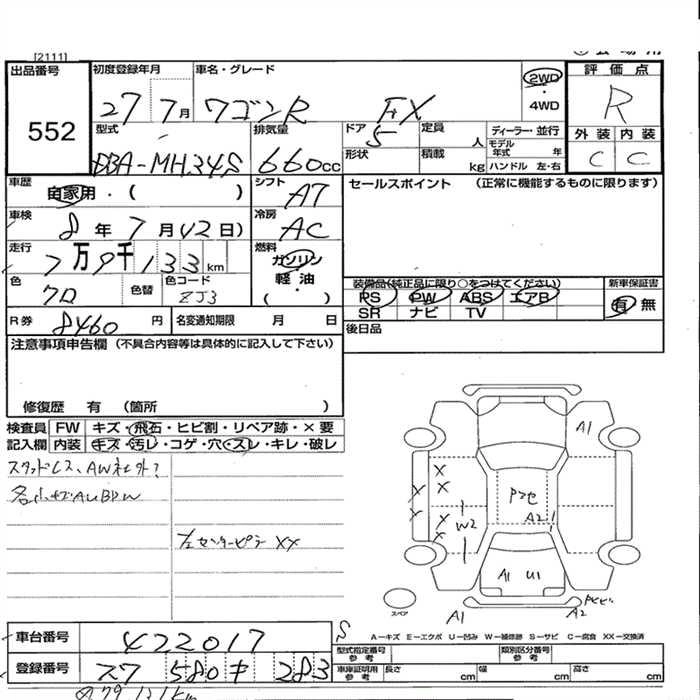 [2111]
出品番号 552
初度登録年月 27 7月
車名・グレード ワゴンR FX
2WD ・ 4WD
評価点 R
外装 内装
C C
型式 DBA-MH34S
排気量 660cc
ドア 5
定員 人
形状
積載 kg
ディーラー・並行
モデル年式 年
ハンドル 左・右
車歴 自家用・( )
シフト AT
セールスポイント (正常に機能するものに限ります)
車検 8年 7月 日)
冷房 AC
走行 7万9千133km
燃料 ガソリン 軽油 ( )
色 クロ
色替
色コード ZJ3
装備品(純正品に限り○をつけてください)
PS PW ABS エアB
SR ナビ TV
新車保証書 有 無
R券 8460円
名変通知期限 月 日
後日品
注意事項申告欄 (不具合内容等は具体的に記入して下さい)
修復歴 有 (箇所 )
検査員記入欄
FW キズ・飛石・ヒビ割・リペア跡・×要
内装 キズ・汚レ・コゲ・穴・スレ・キレ・破レ
スタッドレス、AW社外?
左センターピラー XX
A1
W2
A2
A1 U1
A1
A2
スペア
A-キズ E-エクボ U-凹み W-補修跡 S-サビ C-腐食 XX-交換済
車台番号 422017
S
型式指定番号 参考
類別区分番号 参考
登録番号 580 283
車庫証明用 参考 長さ cm 幅 cm 高さ cm